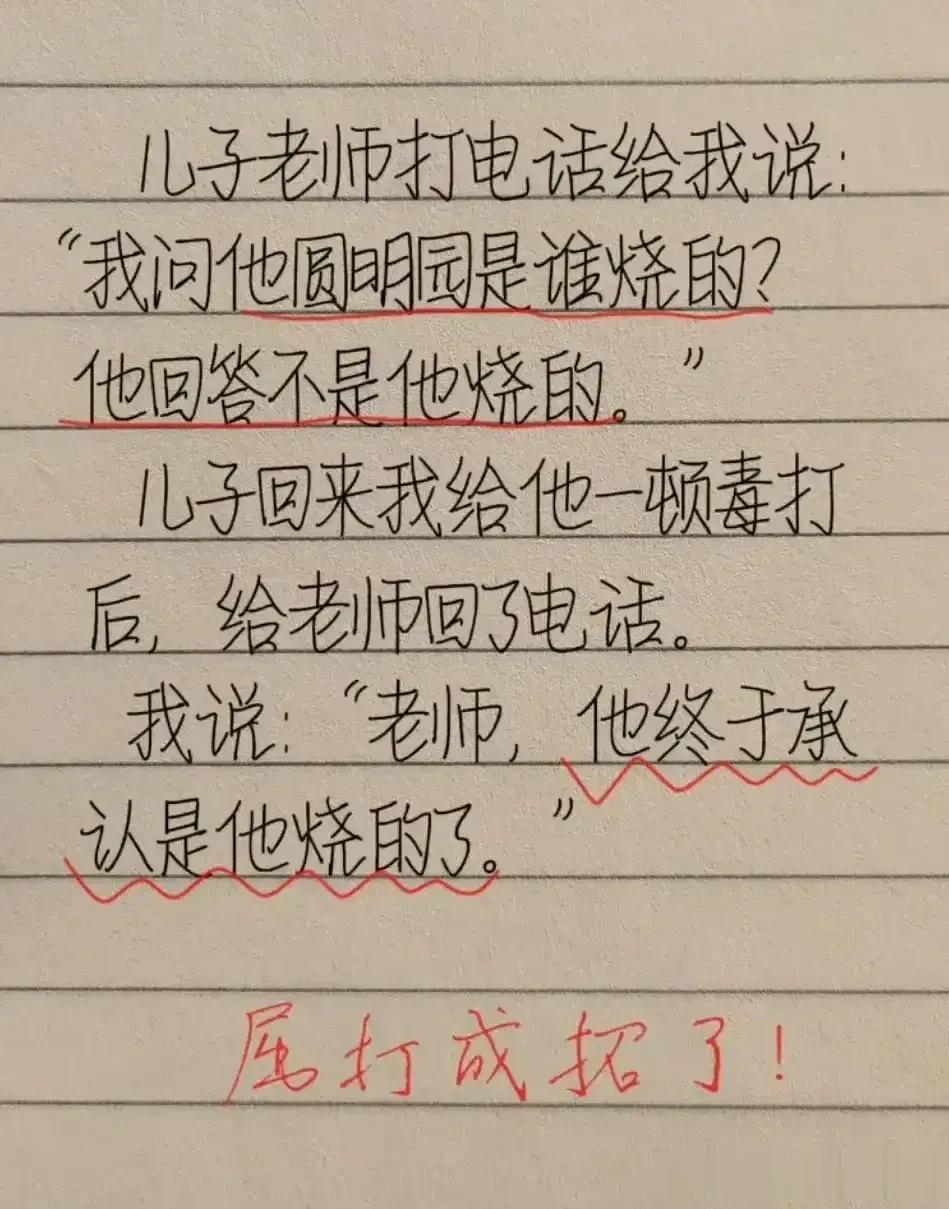 儿子老师打电话给我说:
“我问他圆明园是谁烧的?
他回答不是他烧的。”
儿子回来我给他一顿毒打
后,给老师回了电话。
我说:“老师,他终于承
认是他烧的了。”
屈打成招了!